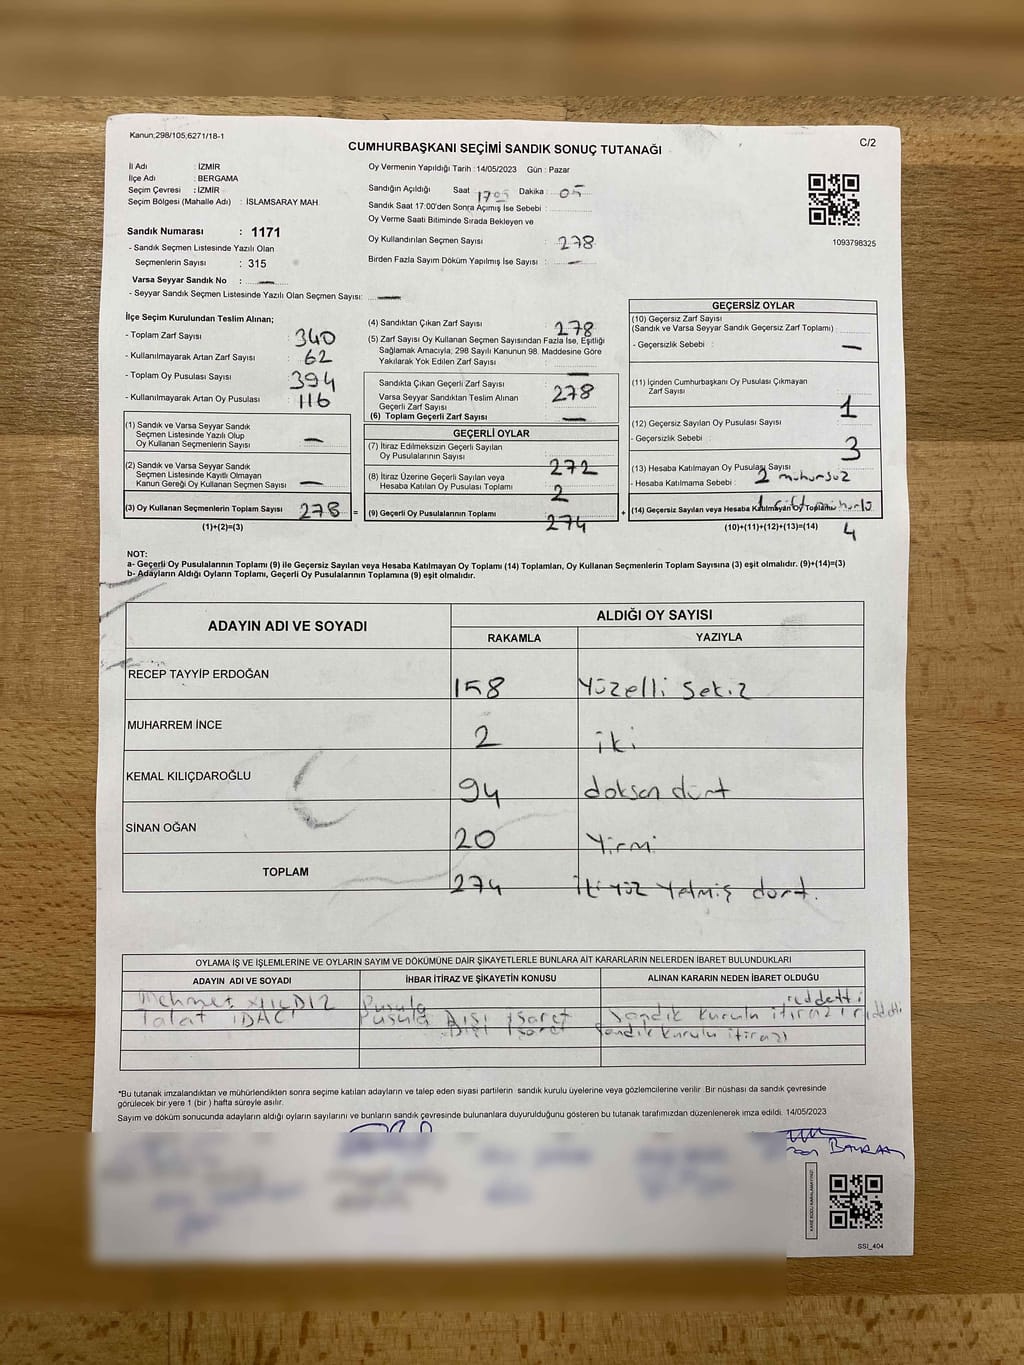 Kanun;298/105;6271/18-1
CUMHURBAŞKANI SEÇİMİ SANDIK SONUÇ TUTANAĞI
C/2
İl Adı : İZMİR
İlçe Adı : BERGAMA
Seçim Çevresi : İZMİR
Seçim Bölgesi (Mahalle Adı) : İSLAMSARAY MAH.
Sandık Numarası : 1171
- Sandık Seçmen Listesinde Yazılı Olan
Seçmenlerin Sayısı : 315
Varsa Seyyar Sandık No : —
- Seyyar Sandık Seçmen Listesinde Yazılı Olan Seçmen Sayısı: —
Oy Vermenin Yapıldığı Tarih : 14/05/2023 Gün : Pazar
Sandığın Açıldığı Saat : 1705 Dakika : 05
Sandık Saat 17:00'den Sonra Açımış İse Sebebi :
Oy Verme Saati Bitiminde Sırada Bekleyen ve
Oy Kullandırılan Seçmen Sayısı : 278
Birden Fazla Sayım Döküm Yapılmış İse Sayısı : —
1093798325
İlçe Seçim Kurulundan Teslim Alınan;
- Toplam Zarf Sayısı : 340
- Kullanılmayarak Artan Zarf Sayısı : 62
- Toplam Oy Pusulası Sayısı : 394
- Kullanılmayarak Artan Oy Pusulası : 116
(1) Sandık ve Varsa Seyyar Sandık
Seçmen Listesinde Yazılı Olup
Oy Kullanan Seçmenlerin Sayısı : —
(2) Sandık ve Varsa Seyyar Sandık
Seçmen Listesinde Kayıtlı Olmayan
Kanun Gereği Oy Kullanan Seçmen Sayısı : —
(3) Oy Kullanan Seçmenlerin Toplam Sayısı : 278 =
(1)+(2)=(3)
(4) Sandıktan Çıkan Zarf Sayısı : 278
(5) Zarf Sayısı Oy Kullanan Seçmen Sayısından Fazla İse, Eşitliği
Sağlamak Amacıyla; 298 Sayılı Kanunun 98. Maddesine Göre
Yakılarak Yok Edilen Zarf Sayısı : —
Sandıkta Çıkan Geçerli Zarf Sayısı : 278
Varsa Seyyar Sandıktan Teslim Alınan
Geçerli Zarf Sayısı :
(6) Toplam Geçerli Zarf Sayısı : —
GEÇERLİ OYLAR
(7) İtiraz Edilmeksizin Geçerli Sayılan
Oy Pusulalarının Sayısı : 272
(8) İtiraz Üzerine Geçerli Sayılan veya
Hesaba Katılan Oy Pusulası Toplamı : 2
(9) Geçerli Oy Pusulalarının Toplamı : 274 +
GEÇERSİZ OYLAR
(10) Geçersiz Zarf Sayısı
(Sandık ve Varsa Seyyar Sandık Geçersiz Zarf Toplamı) :
- Geçersizlik Sebebi : —
(11) İçinden Cumhurbaşkanı Oy Pusulası Çıkmayan
Zarf Sayısı : 1
(12) Geçersiz Sayılan Oy Pusulası Sayısı :
- Geçersizlik Sebebi : 3
(13) Hesaba Katılmayan Oy Pusulası Sayısı
- Hesaba Katılmama Sebebi : 2 mühürsüz
1 çift mühürlü
(14) Geçersiz Sayılan veya Hesaba Katılmayan Oy Toplamı
(10)+(11)+(12)+(13)=(14) 4
NOT:
a- Geçerli Oy Pusulalarının Toplamı (9) ile Geçersiz Sayılan veya Hesaba Katılmayan Oy Toplamı (14) Toplamları, Oy Kullanan Seçmenlerin Toplam Sayısına (3) eşit olmalıdır. (9)+(14)=(3)
b- Adayların Aldığı Oyların Toplamı, Geçerli Oy Pusulalarının Toplamına (9) eşit olmalıdır.
ADAYIN ADI VE SOYADI ALDIĞI OY SAYISI
RAKAMLA YAZIYLA
RECEP TAYYİP ERDOĞAN 158 Yüzelli Sekiz
MUHARREM İNCE 2 iki
KEMAL KILIÇDAROĞLU 94 doksan dört
SİNAN OĞAN 20 Yirmi
TOPLAM 274 İki yüz Yetmiş dört.
OYLAMA İŞ VE İŞLEMLERİNE VE OYLARIN SAYIM VE DÖKÜMÜNE DAİR ŞİKAYETLERLE BUNLARA AİT KARARLARIN NELERDEN İBARET BULUNDUKLARI
ADAYIN ADI VE SOYADI İHBAR İTİRAZ VE ŞİKAYETİN KONUSU ALINAN KARARIN NEDEN İBARET OLDUĞU
Mehmet YILDIZ Pusula reddetti
Talat İDACI Pusula Dışı işaret Sandık Kurulu itirazı reddetti
Dışı işaret Sandık Kurulu itirazı
*Bu tutanak imzalandıktan ve mühürlendikten sonra seçime katılan adayların ve talep eden siyasi partilerin sandık kurulu üyelerine veya gözlemcilerine verilir. Bir nüshası da sandık çevresinde
görülecek bir yere 1 (bir ) hafta süreyle asılır.
Sayım ve döküm sonucunda adayların aldığı oyların sayılarını ve bunların sandık çevresinde bulunanlara duyurulduğunu gösteren bu tutanak tarafımızdan düzenlenerek imza edildi. 14/05/2023
KARE KODU KARALAMAYINIZ!
SSI_404